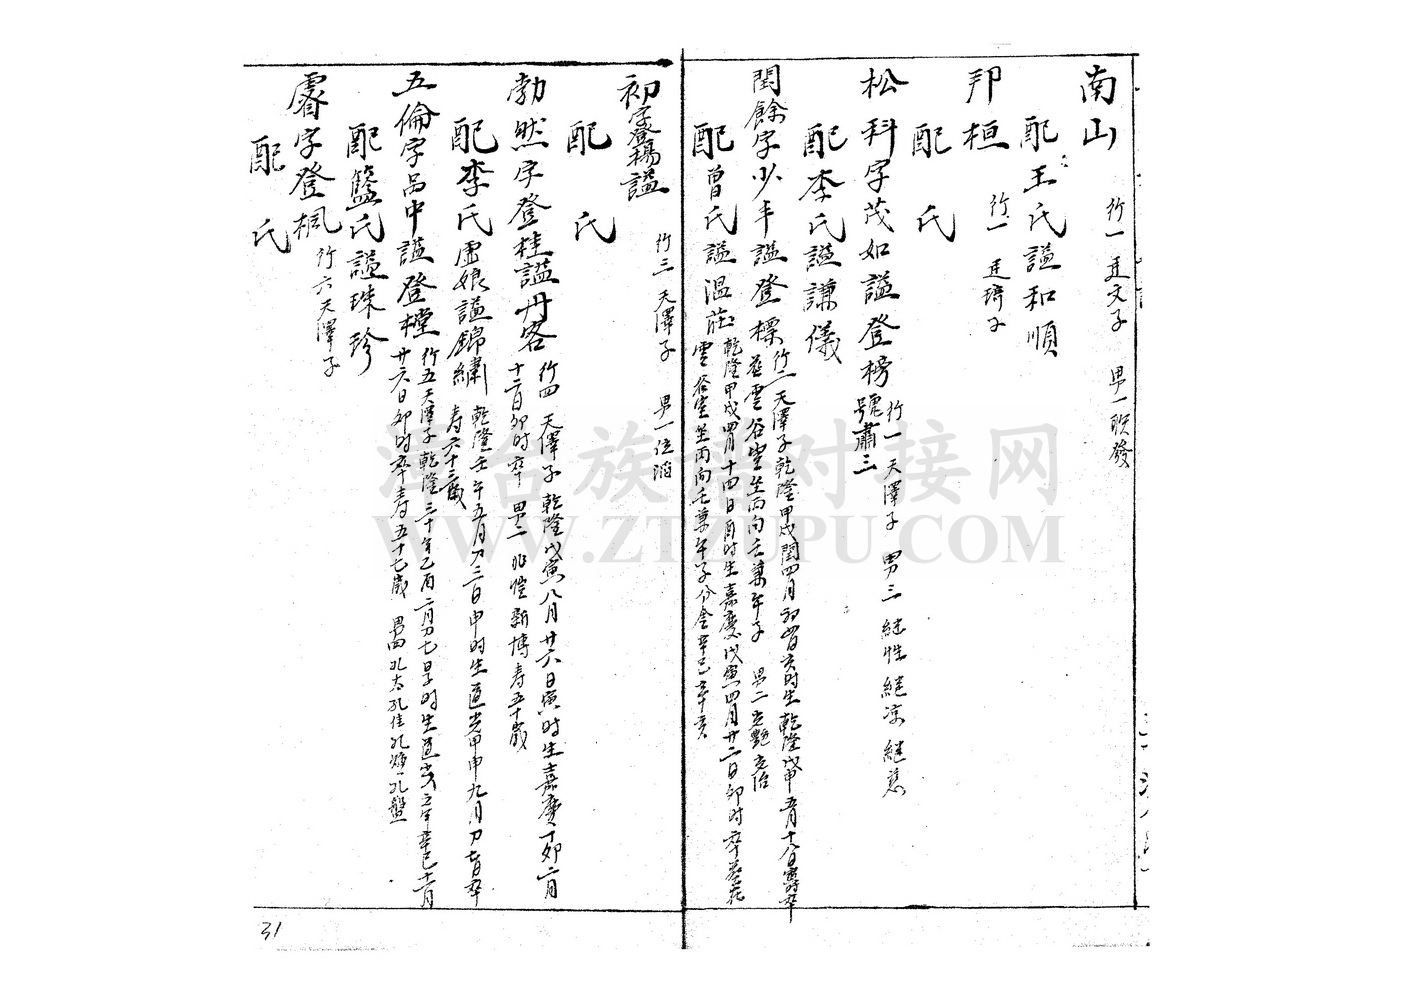 南山 行一 廷文子 男一 聯發
配王氏謚和順
邦桓 行一 廷琦子
配 氏
松科字茂如謚登榜 行一 天澤子 男三 繼性 繼凉 繼慈
號肅三
配李氏謚謙儀
閏餘字少年謚登標 行二 天澤子 乾隆甲戌閏四月初 日亥时生 乾隆戊申 月十八日寅时卒
葬雲谷 坐丙向壬兼午子 男二 志 志治
配曾氏謚温莊 乾隆甲戌四月十四日酉时生嘉慶戊寅四月廿二日卯时卒葬
雲谷 坐丙向壬兼午子分金辛巳辛亥
初字登楊謚 行三 天澤子 男一 位滔
配 氏
勃然字登桂謚丹客 行四 天澤子 乾隆戊寅八月廿六日寅时生嘉慶丁卯二月
十二日卯时卒 男二 兆 新博 寿五十歲
配李氏虚娘謚錦繡 乾隆壬午五月初三日申时生道光甲申九月初七日卒
寿六十三歲
五倫字品中謚登樘 行五 天澤子 乾隆三十年乙酉二月初七日子时生道光元年辛巳十一月
廿六日卯时卒寿五十七歲 男四 孔太 孔佳 孔 孔盤
配籃氏謚珠珍
睿字登楓 行六 天澤子
配 氏
31
泽台族谱对接网
WWW.ZTZUPU.COM